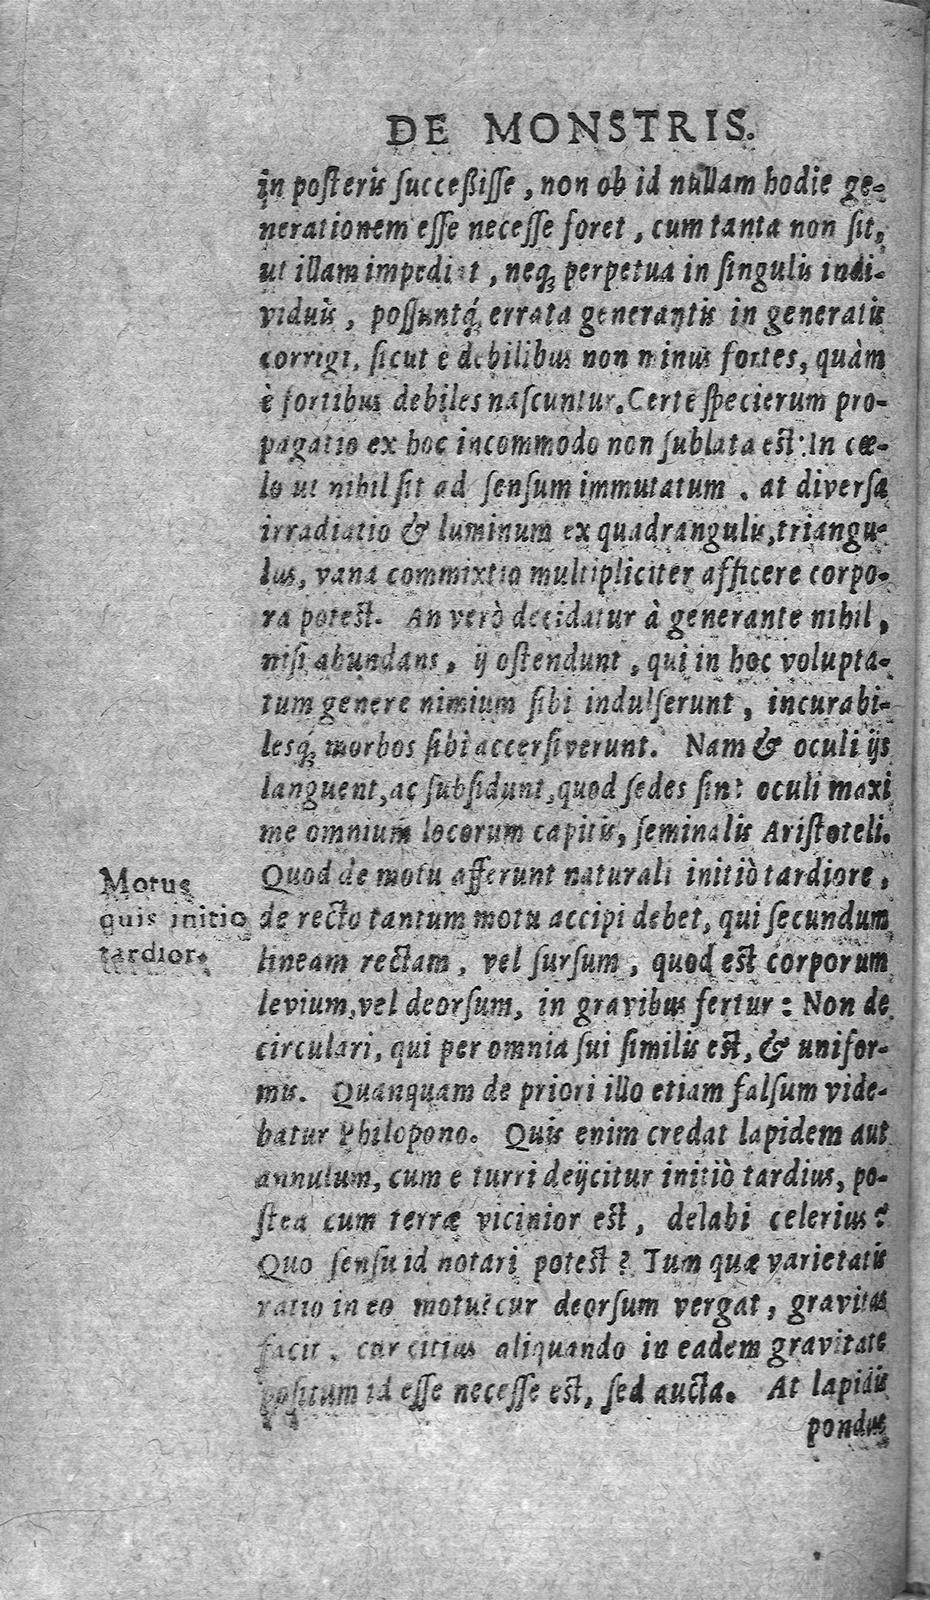 DE MONSTRIS.
in posteris succeßisse, non ob id nullam hodie ge-
nerationem esse necesse foret, cum tanta non sit,
ut illam impediat, neq; perpetua in singulis indi-
viduis, possuntq́; errata generantis in generatis
corrigi, sicut è debilibus non minus fortes, quàm
è fortibus debiles nascuntur. Certè specierum pro-
pagatio ex hoc incommodo non sublata est: In cœ-
lo ut nihil sit ad sensum immutatum, at diversa
irradiatio & luminum ex quadrangulis, triangu-
lus, varia commixtio multipliciter afficere corpo-
ra potest. An verò decidatur à generante nihil,
nisi abundans, ij ostendunt, qui in hoc volupta-
tum genere nimium sibi indulserunt, incurabi-
lesq́; morbos sibi accersiverunt. Nam & oculi ijs
languent, ac subsidunt, quod sedes sint oculi maxi
me omnium locorum capitis, seminalis Aristoteli.
Quod de motu afferunt naturali initiò tardiore,
Motus
quis initio
tardior.
de recto tantum motu accipi debet, qui secundum
lineam rectam, vel sursum, quod est corporum
levium, vel deorsum, in gravibus fertur: Non de
circulari, qui per omnia sui similis est, & unifor-
mis. Quanquam de priori illo etiam falsum vide-
batur Philopono. Quis enim credat lapidem aut
annulum, cum e turri deijcitur initiò tardius, po-
stea cum terræ vicinior est, delabi celerius?
Quo sensu id notari potest? Tum quæ varietatis
ratio in eo motu? cur deorsum vergat, gravitas
facit, cur citius aliquando in eadem gravitate
positum id esse necesse est, sed aucta. At lapidis
pondus